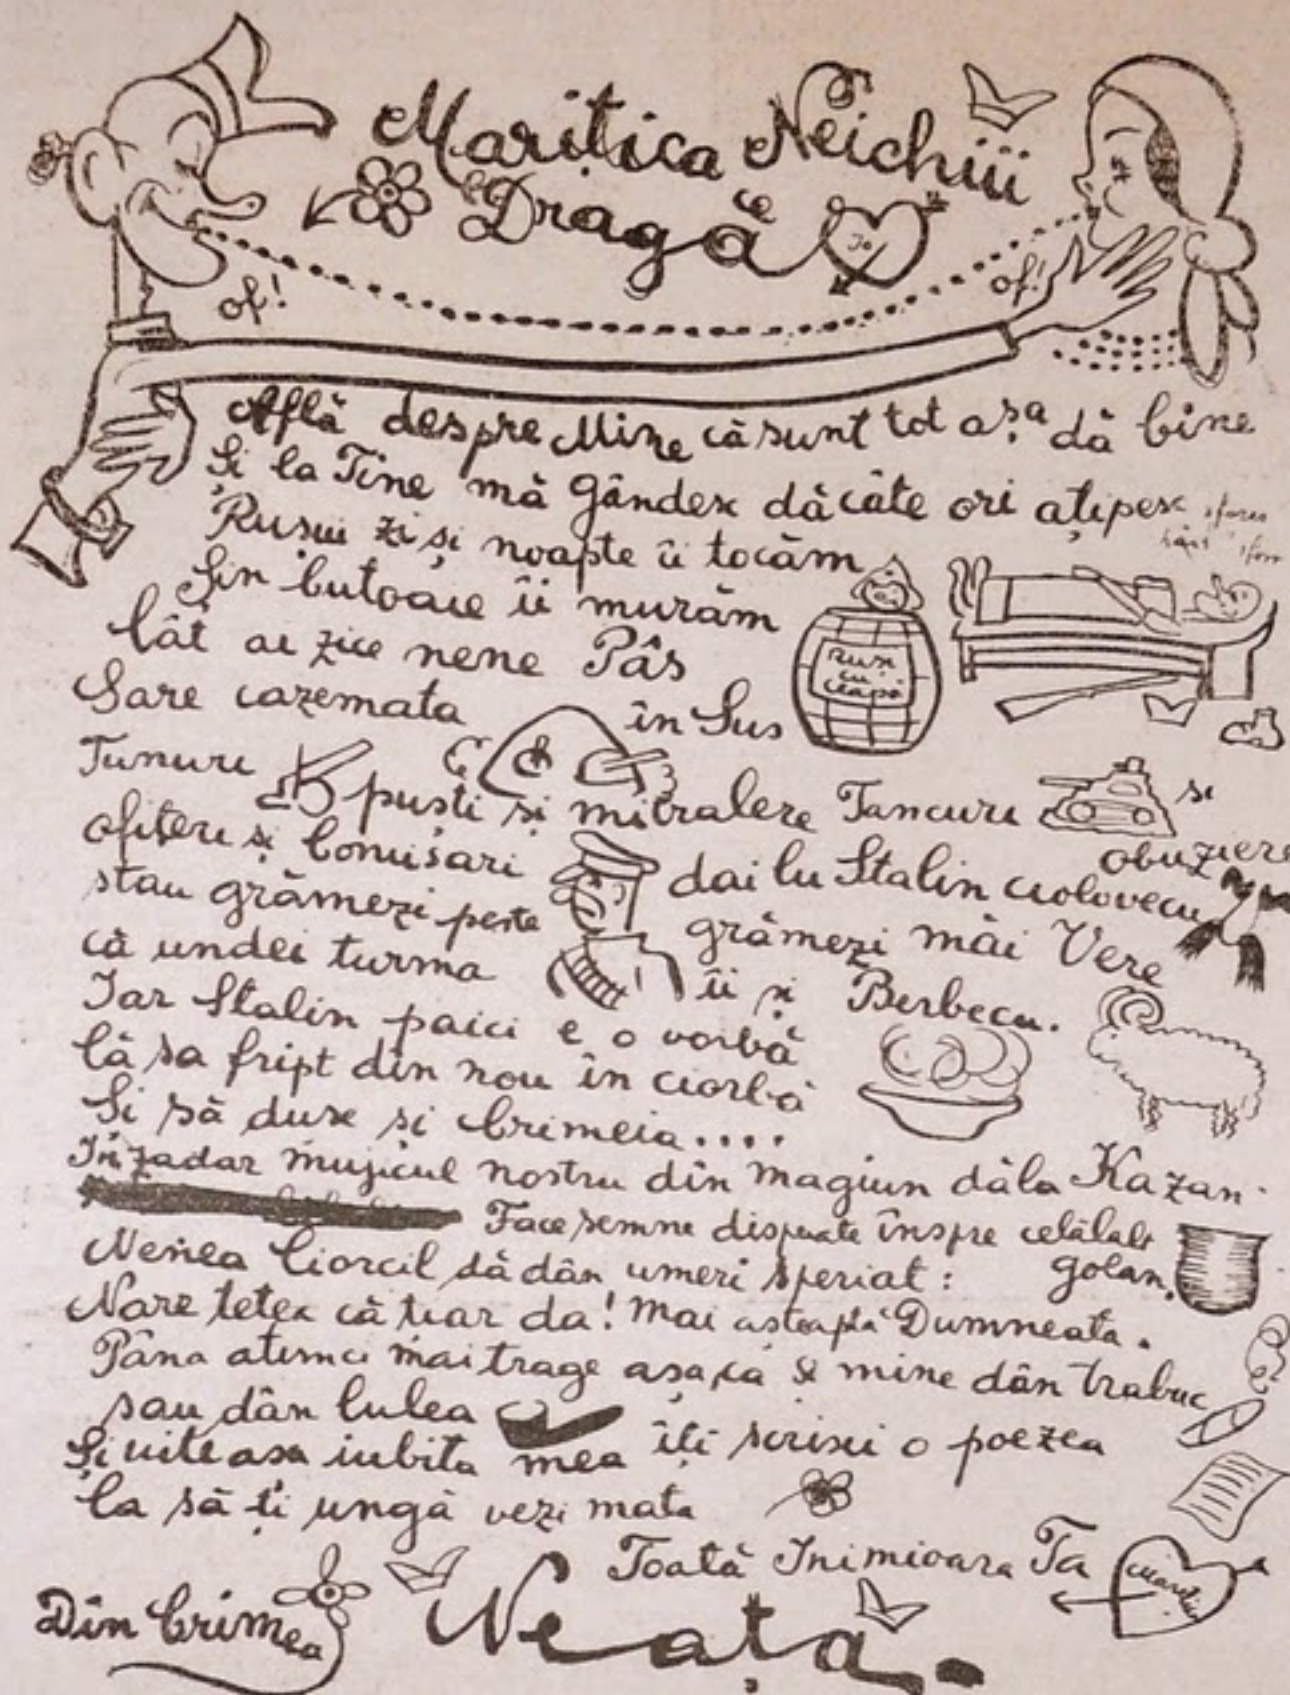 Marițica Neichiii
Dragă
of!
of!
Află despre Mine că sunt tot așa dă bine
Și la Tine mă gândesc dăcâte ori ațipesc
Rușii zi și noapte îi tocăm
Și'n butoaie îi murăm
Cât ai zice nene Pâs
Sare cazemata în Sus
Ruși
cu
ceapă
Tunuri puști și mitraliere Tancuri și
obuziere
ofițeri și Comisari dai lu Stalin ciolovecu
stau grămezi peste grămezi măi Vere
că undei turma îi și Berbecu.
Iar Stalin paici e o vorbă
Că sa fript din nou în ciorbă
Și să duse și Crimeia....
Înzadar mujicul nostru din magiun dăla Kazan
Face semne disperate înspre celălalt
golan.
Nenea Ciorcil dă dân umeri speriat:
Nare tetea că țiar da! Mai așteaptă Dumneata.
Pâna atunci mai trage așa ca și mine dân trabuc
sau dân lulea
Și uite așa iubita mea îți scrisei o poezea
Ca să ți ungă vezi mata
Toată Inimioara Ta
Din Crimea
Neață